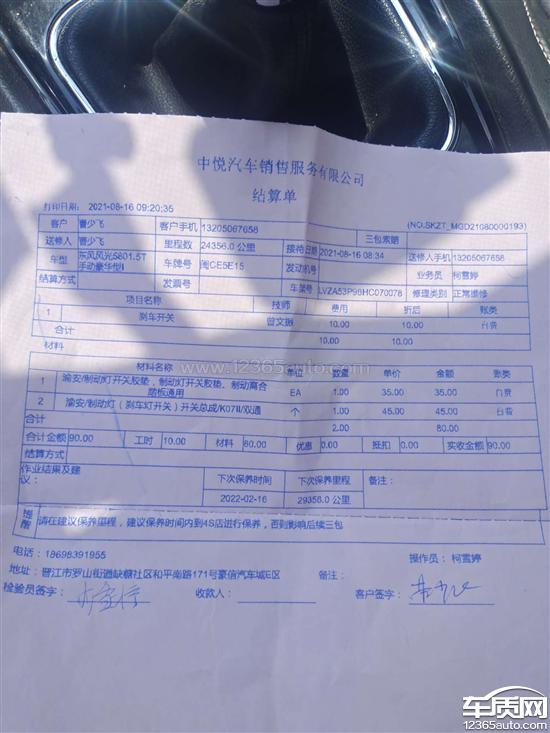 中悦汽车销售服务有限公司
结算单
打印日期: 2021-08-16 09:20:35
(NO.SKZT_MGD21080000193)
客户 曹少飞 客户手机 13205067658 三包索赔
送修人 曹少飞 里程数 24356.0 公里 接待日期 2021-08-16 08:34 送修人手机 13205067658
车型 东风风光S601.5T手动豪华型I 车牌号 闽CE5E15 发动机号 业务员 柯雪婷
结算方式 发票号 车架号 LVZA53P98HC070078 修理类别 正常维修
项目名称 技师 费用 折后 账类
1 刹车开关 曾文振 10.00 10.00 自费
合计 10.00 10.00
材料
www.12365auto.com
材料名称 单位 数量 单价 金额 账类
1 渝安/制动灯开关胶垫，制动灯开关胶垫，制动离合踏板通用 EA 1.00 35.00 35.00 自费
2 渝安/制动灯（刹车灯开关）开关总成/K07II/双通 个 1.00 45.00 45.00 自费
合计 2.00 80.00
合计金额 90.00 工时 10.00 材料 80.00 优惠 0.00 抵扣 0.00 实收金额 90.00
结算方式
作业结果及建议： 下次保养时间 下次保养里程 备注：
2022-02-16 29356.0 公里
提醒 请在建议保养里程，建议保养时间内到4S店进行保养，否则影响后续三包
电话：18698391955 操作员：柯雪婷
地址：晋江市罗山街道缺塘社区和平南路171号豪信汽车城E区 备注：
检验员签字： 收款人： 客户签字：
车质网
www.12365auto.com